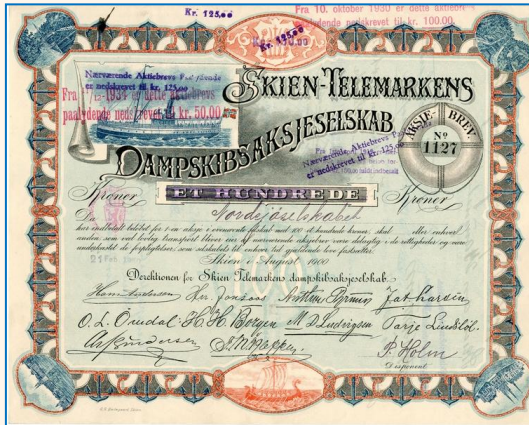 Kr. 125,00
Fra 10. oktober 1930 er dette aktiebrevs
paalydende nedskrevet til kr. 100.00.
Kr. 125,00
Nærværende Aktiebrevs Paalydende
er nedskrevet til kr. 125,00
Fra 1934 er dette aktiebrevs
paalydende nedskrevet til kr. 50,00
SKIEN-TELEMARKENS
DAMPSKIBSAKSJESELSKAB
AKSJE-BREV
No
1127
Nærværende Aktiebrevs
er nedskrevet til kr. 125,00
Kroner ET HUNDREDE Kroner
Nordsjöselskabet
Da
har indbetalt beløbet for 1 en aksje i ovennævnte selskab med 100 et hundrede kroner, skal eller enhver
anden, som ved lovlig transport bliver eier af nærværende aksjebrev være delagtig i de rettigheder og være
underkastet de forpligtelser, som selskabets til enhver tid gjældende love fastsætter.
Skien i August 1900
Direktionen for Skien Telemarkens dampskibsaksjeselskab.
Hans Andersen
O. L. Örudal H. H. Borgen M D Ludvigsen Tarje Lindslöl.
P. Holm
Disponent